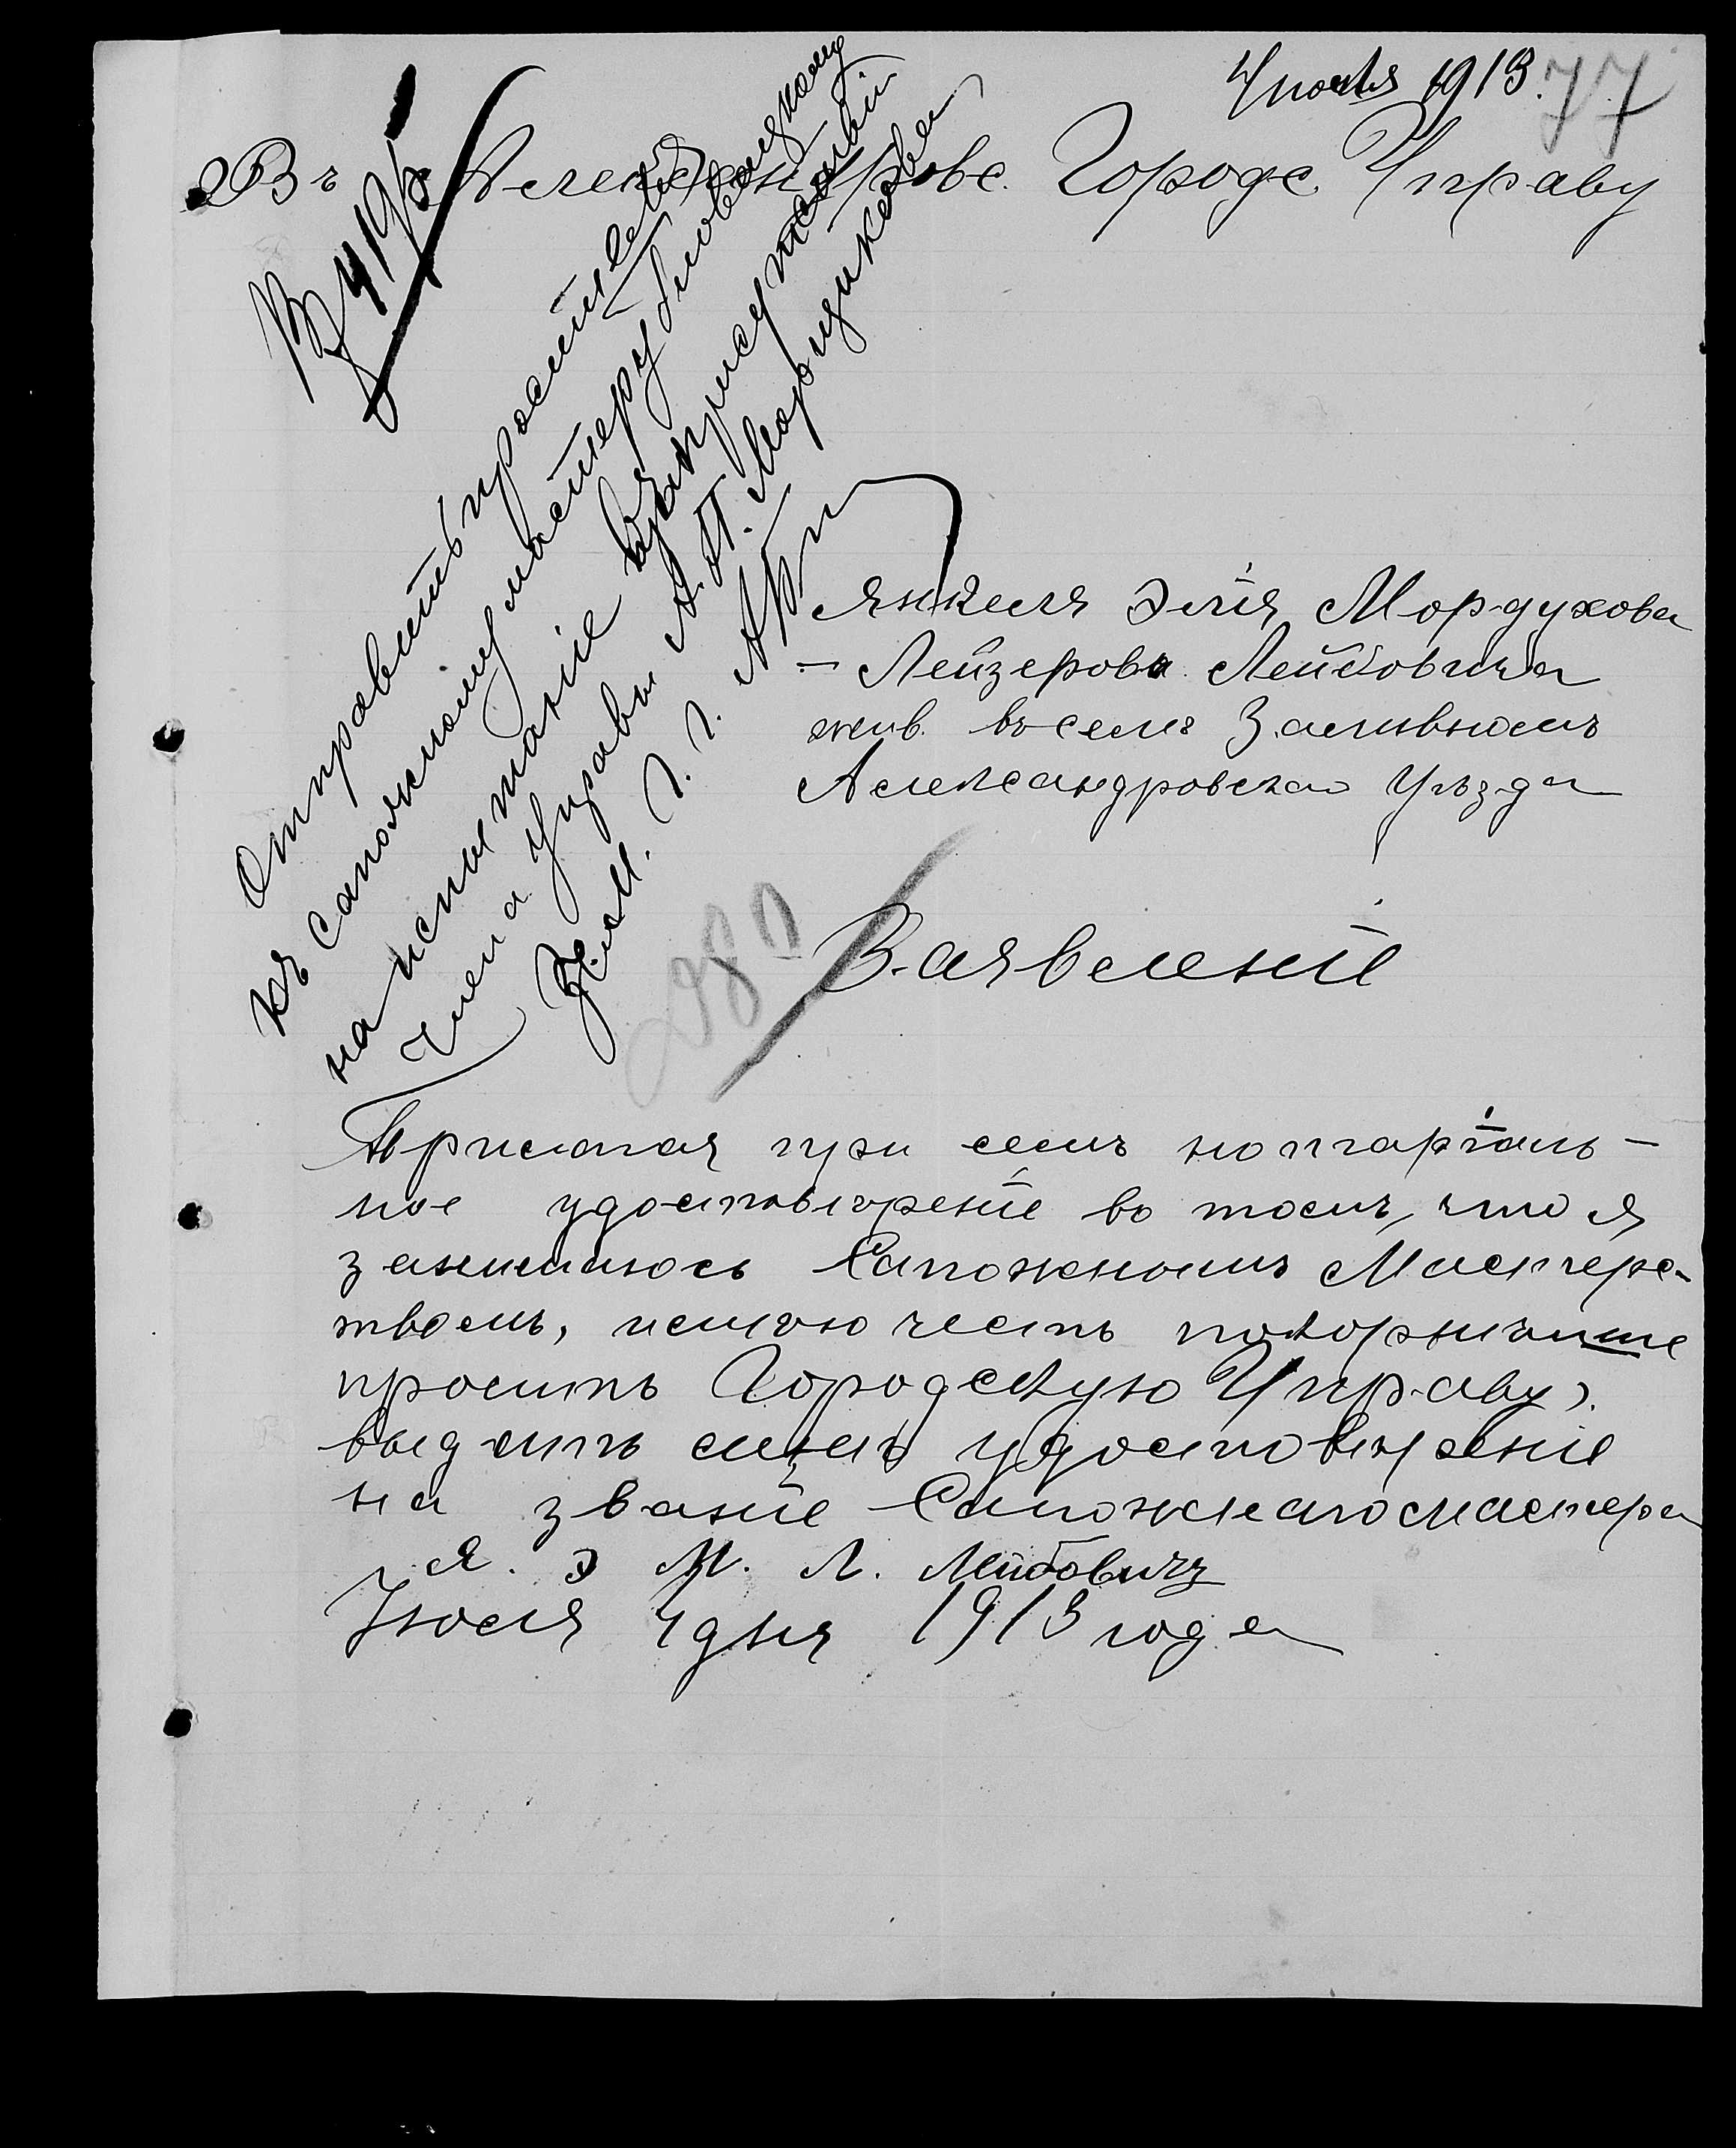 4 июля 1913.
77
Въ Александровс. Городс. Управу
Вх 419/
Отправить просителя
къ сапожному мастеру
на испытаніе въ присутствіи
члена управы А. П. Морощикова
Янкеля Эліа Мордухова
- Лейзерова Лейбовича
жив. въ селѣ Заливномъ
Александровскаго Уѣзда
280
Заявленіе
Прилагая при семъ нотаріаль-
ное удостовѣреніе во томъ, что я
занимаюсь Сапожнымъ Мастерс-
твомъ, имѣю честь покорнѣйше
просить Городскую Управу,
выдать мнѣ удостовѣреніе
на званіе Сапожнаго мастера
Я. Э М. Л. Лейбовичъ
Іюля 4 дня 1913 года